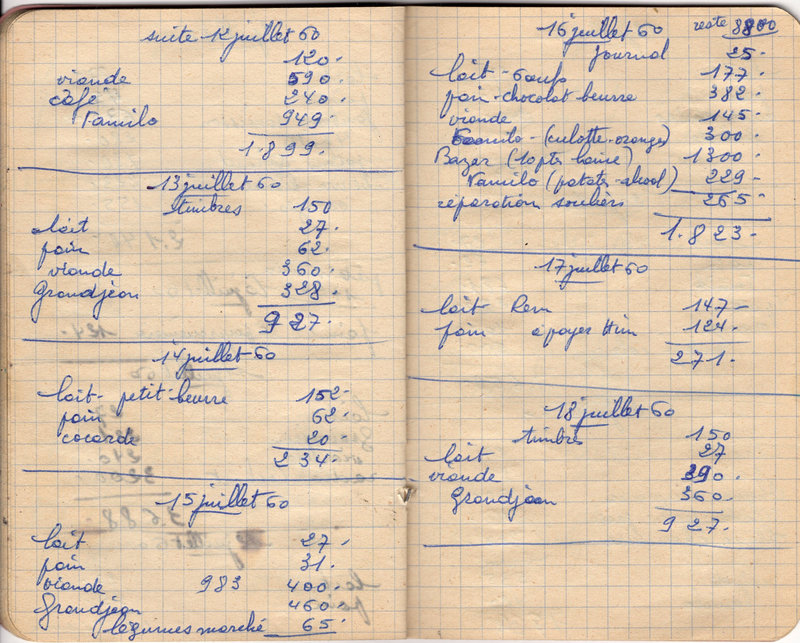 suite 12 juillet 60
120.
viande 590.
café 240.
Familo 949.
1.899.
13 juillet 60
timbres 150
lait 27.
pain 62.
viande 360.
Grandjean 328.
927.
14 juillet 60
lait - petit-beurre 152.
pain 62.
cocarde 20.
234.
15 juillet 60
lait 27.
pain 31.
viande 983 400.
Grandjean 460.
légumes marché 65.
16 juillet 60 reste 8800
Journal 25.
lait - oeufs 177.
pain - chocolat - beurre 382.
viande 145.
Familo - (culotte - oranges) 300.
Bazar (10 pts laine) 1300.
Familo (patates - alcool) 229.
réparation souliers 265.
1.823.
17 juillet 60
lait Rem 147.
pain à payer 124.
271.
18 juillet 60
timbres 150
lait 27
viande 390.
Grandjean 360.
927.